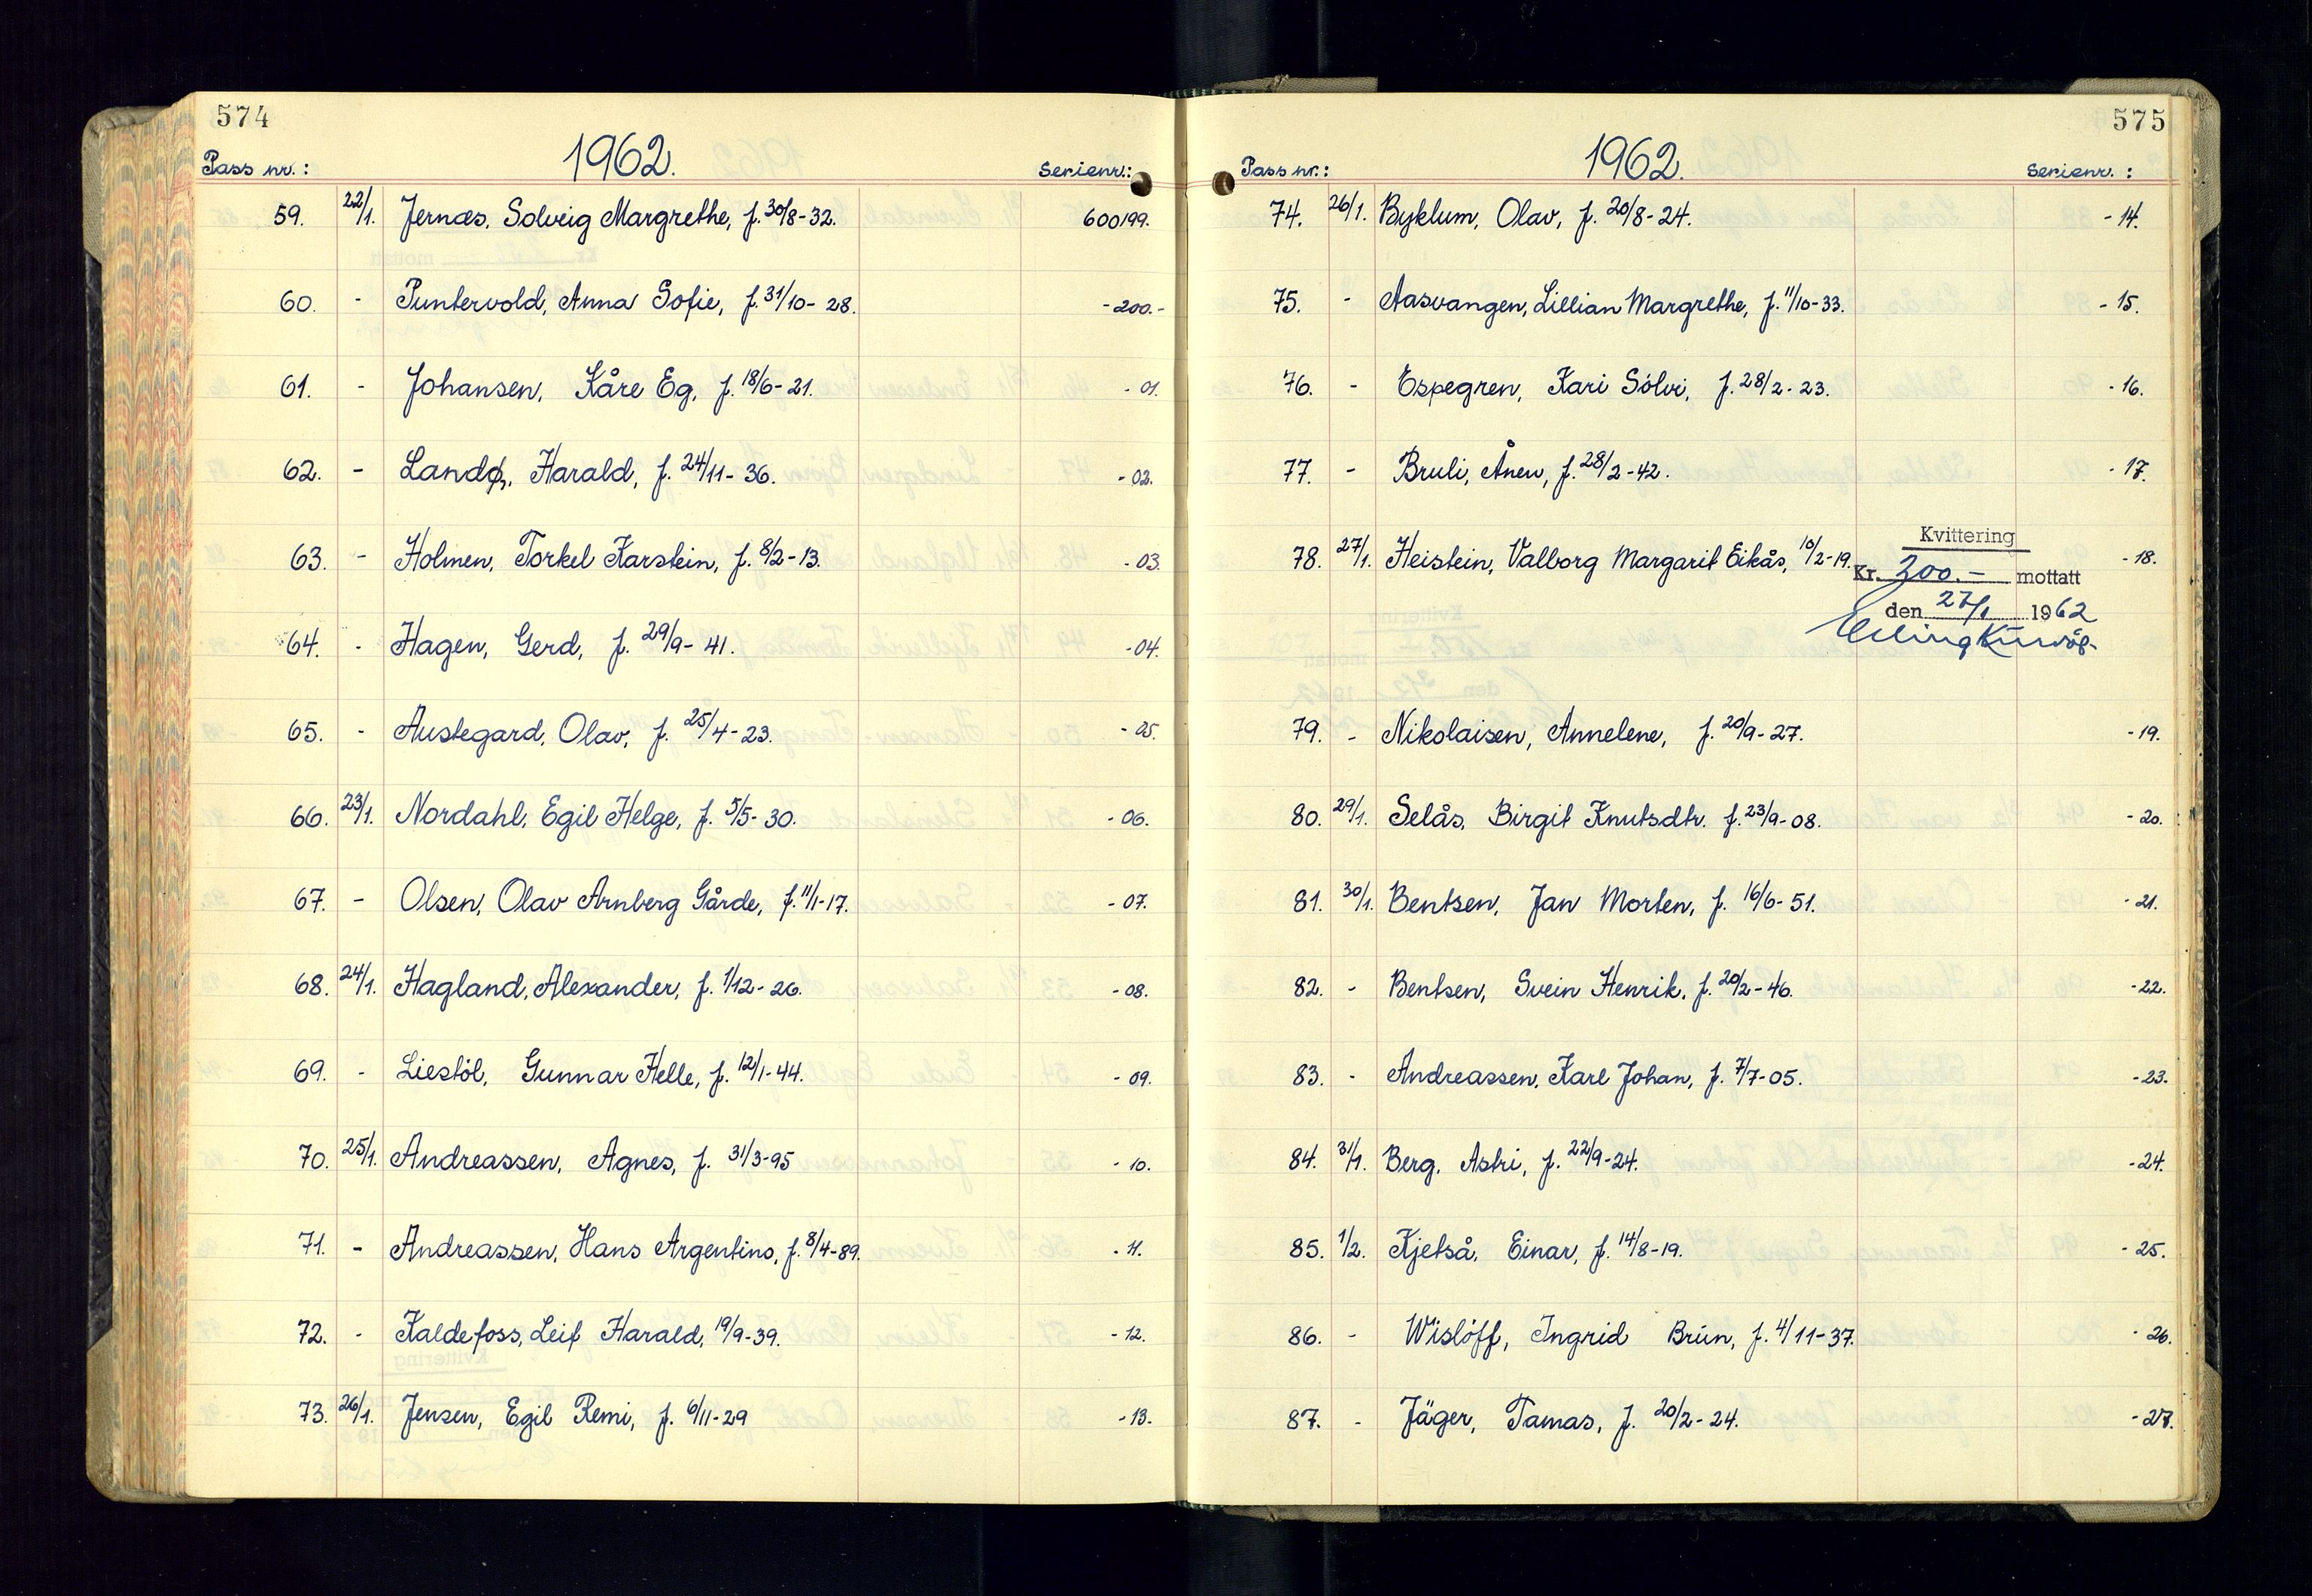 574
Pass nr.: 1962. Serienr.:
59. 22/1. Jernæs, Solveig Margrethe, f. 30/8-32. 600199.
60. - Puntervold, Anna Sofie, f. 31/10-28. -200.-
61. - Johansen, Kåre Eg, f. 18/6-21. -01.
62. - Landø, Harald, f. 24/11-36. -02.
63. - Holmen, Torkel Karstein, f. 8/2-13. -03.
64. - Hagen, Gerd, f. 29/9-41. -04.
65. - Austegard, Olav, f. 25/4-23. -05.
66. 23/1. Nordahl, Egil Helge, f. 5/5-30. -06.
67. - Olsen, Olav Arnberg Gårde, f. 11/1-17. -07.
68. 24/1. Hagland, Alexander, f. 1/12-26. -08.
69. - Liestöl, Gunnar Helle, f. 12/1-44. -09.
70. 25/1. Andreassen, Agnes, f. 31/3-95 -10.
71. - Andreassen, Hans Argentino, f. 8/4-89. -11.
72. - Kaldefoss, Leif Harald, 19/9-39. -12.
73. 26/1. Jensen, Egil Remi, f. 6/11-29 -13.
575
Pass nr.: 1962. Serienr.:
74. 26/1. Byklum, Olav, f. 20/8-24. -14.
75. - Aasvangen, Lillian Margrethe, f. 11/10-33. -15.
76. - Espegren, Kari Sölvi, f. 28/2-23. -16.
77. - Bruli, Ånen, f. 28/2-42. -17.
Kvittering
78. 27/1. Heistein, Valborg Margarit Eikås, 10/2-19. -18.
Kr. 300.- mottatt
den 27/1 1962
79. - Nikolaisen, Annelene, f. 20/9-27. -19.
80. 29/1. Selås, Birgit Knutsdtr. f. 23/9-08. -20.
81. 30/1. Bentsen, Jan Morten, f. 16/6-51. -21.
82. - Bentsen, Svein Henrik, f. 20/2-46. -22.
83. - Andreassen, Karl Johan, f. 7/7-05. -23.
84. 31/1. Berg, Astri, f. 22/9-24. -24.
85. 1/2. Kjetså, Einar, f. 14/8-19. -25.
86. - Wislöff, Ingrid Brün, f. 4/11-37. -26.
87. - Jäger, Tamas, f. 20/2-24. -27.